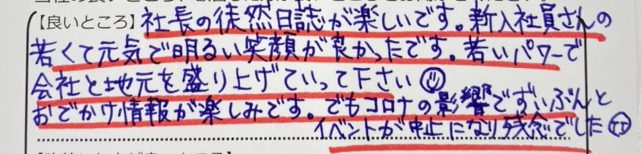 【良いところ】社長の徒然日誌が楽しいです。新入社員さんの
若くて元気で明るい笑顔が良かったです。若いパワーで
会社と地元を盛り上げていって下さい
おでかけ情報が楽しみです。でもコロナの影響でずいぶんと
イベントが中止になり残念でした